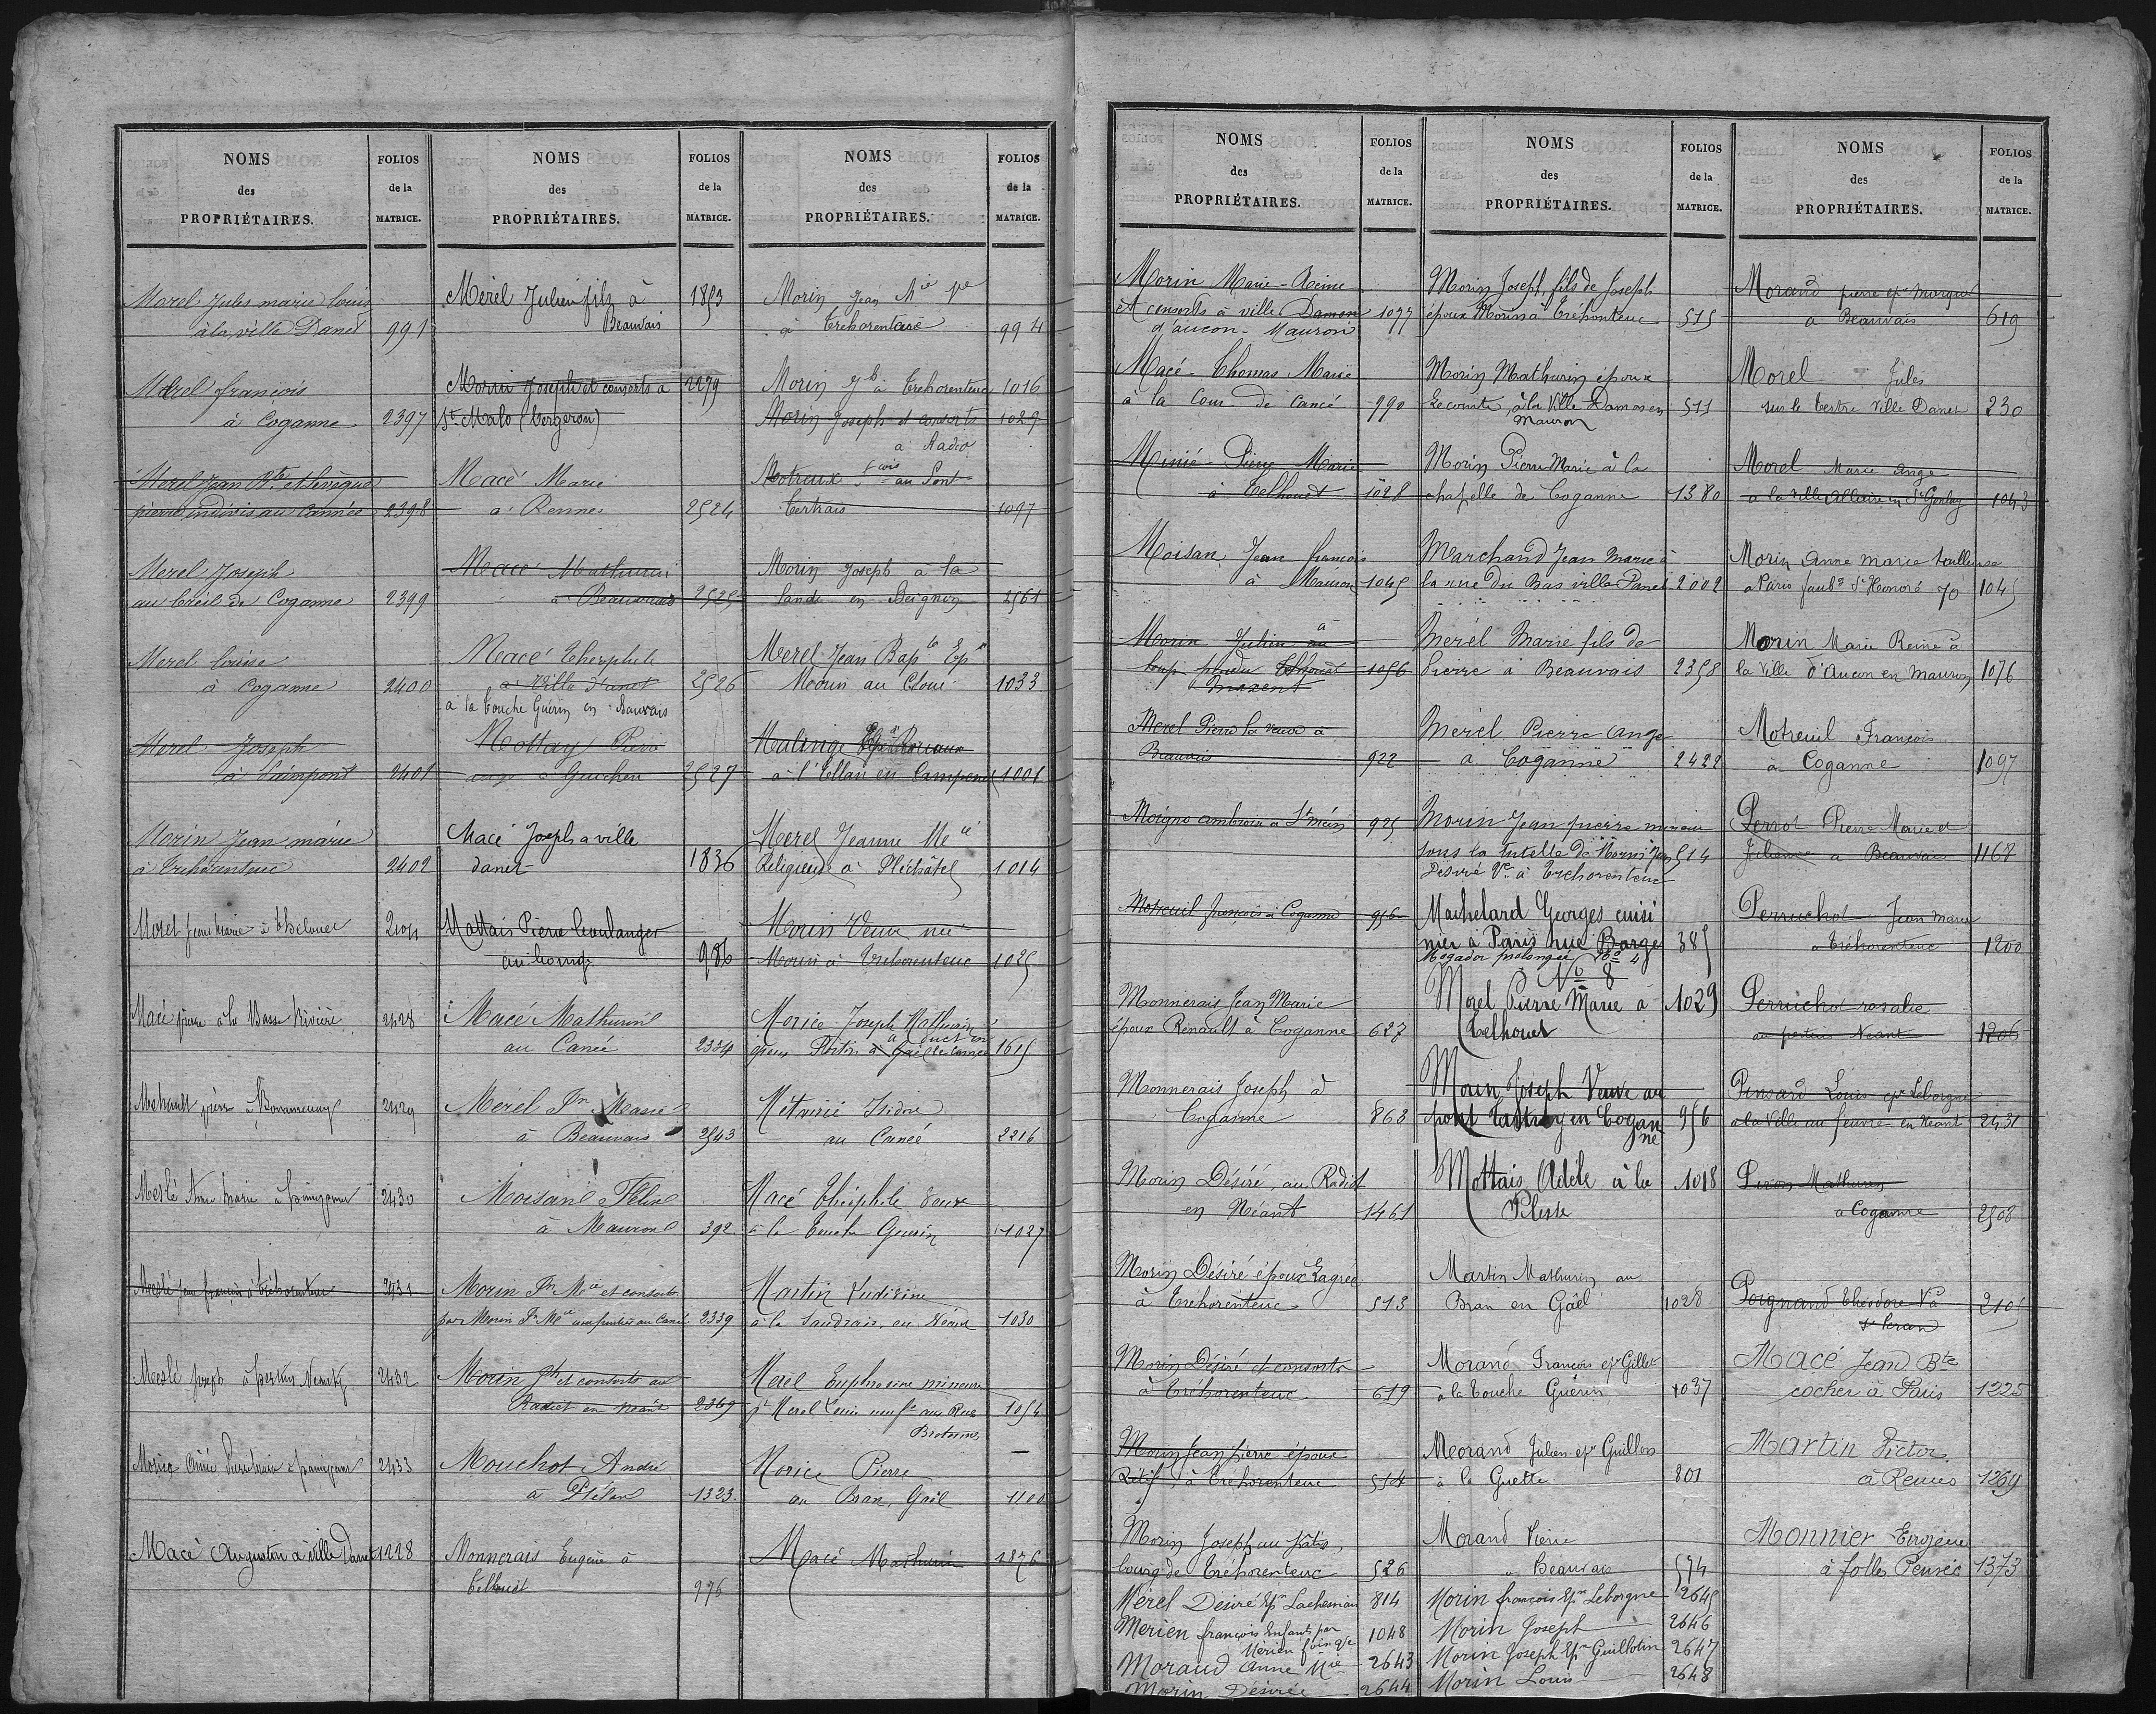 NOMS
des
PROPRIÉTAIRES.
FOLIOS
de la
MATRICE.
Morel Jules marie louis
à la ville Danet 991
Morel françois
à Coganne 2397
Merel Jean Bte et Levêque
pierre indivis au Cannée 2398
Merel Joseph
au Créil de Coganne 2399
Merel louise
à Coganne 2400
Morel Joseph
à Paimpont 2401
Morin Jean marie
à Tréhorenteuc 2402
Morel Jean Marie à Thelouet 2404
Macé pierre à la Basse Rivière 2428
Mehault pierre à 2429
Meslé Anne Marie à 2430
Meslé Jean françois à Tréhorenteuc 2431
Meslé Joseph à pertuis Néant 2432
Morice Aimé à 2433
Macé Augustin à ville Danet 1228
NOMS
des
PROPRIÉTAIRES.
FOLIOS
de la
MATRICE.
Mérel Julien fils à 1853
Beauvais
Morin Joseph et consorts à 2279
St Malo (Bergeron)
Macé Marie
à Rennes 2524
Macé Mathurin
à Beauvais 2525
Macé Théophile
à Ville Danet 2526
à la touche Guérin en Beauvais
Mottay Pierre
ange à Guichen 2527
Macé Joseph a ville
danet 1836
Mattais Pierre boulanger
au bourg 986
Macé Mathurin
au Canée 2334
Mérel Jn Marie
à Beauvais 2543
Moisan Félix
à Mauron 392
Morin Jn Mie et consorts
par Morin Jn Mie au Canée 2339
Morin Jh et consorts au
Radiet en Néant 2369
Mouchot André
à Plélan 1323
Monnerais Eugène à
Telhouët 976
NOMS
des
PROPRIÉTAIRES.
FOLIOS
de la
MATRICE.
Morin Jean Mie Ve
à Tréhorenteuc 994
Morin Jh à Tréhorenteuc 1016
Morin Joseph et consorts 1029
à Radio
Motreux fçois au Pont
Tertrais 1097
Morin Joseph à la
lande en Beignon 2561
Merel Jean Bapte Epx
Morin au Cloui 1033
Malinge
à l'Ellan en Campénéac 1001
Merel Jeanne Mie
Religieuse à Pléchâtel 1014
Morin Veuve née
Morin à Tréhorenteuc 1025
Morice Joseph Mathurin
époux 1615
Métairie Isidore
au Canée 2216
Macé Théophile
à la Touche Guérin 1027
Martin
à la Saudraie en Néant 1030
Merel Euphrosine mineure
pr Merel 1054
Morice Pierre
au Bran, Gaël 1100
Macé Mathurin 1876
NOMS
des
PROPRIÉTAIRES.
FOLIOS
de la
MATRICE.
Morin Marie-Reine
et consorts à ville Damon 1077
d'aucon-Mauron
Macé-Thomas Marie
à la Cour de Cancé 990
Minié-Pierre Marie
à Telhouet 1028
Moisan Jean françois
à Mauron 1045
Morin Julien au
Telhouët 1056
Maxent
Merel Pierre la veuve à
Beauvais 922
Moigno ambroise à St méen 925
Motreuil françois à Coganne 956
Monnerais Jean Marie
époux Renault à Coganne 627
Monnerais Joseph à
Coganne 863
Morin Désiré, au Radiet
en Néant 1461
Morin Désiré époux
à Tréhorenteuc 513
Morin Désiré et consorts
à Tréhorenteuc 619
Morin Jean pierre époux
Rétif, à Tréhorenteuc 514
Morin Joseph au Patis,
bourg de Tréhorenteuc 526
Mérel Désiré Epx 814
Merien françois Enfants par 1048
Mérien
Moraud Anne Mie 2643
Morin Désirée 2644
NOMS
des
PROPRIÉTAIRES.
FOLIOS
de la
MATRICE.
Morin Joseph fils de Joseph
époux Morin à Tréhorenteuc 515
Morin Mathurin époux
Lecomte, à la Ville Damon en 511
Mauron
Morin Pierre Marie à la
chapelle de Coganne 1380
Marchand Jean marie à
la rue du Bas ville Danet 2002
Mérel Marie fils de
Pierre à Beauvais 2358
Mérel Pierre Ange
à Coganne 2422
Morin Jean pierre mineur
sous la tutelle de Morin Jean 514
Désiré Ve à Tréhorenteuc
Machelard Georges cuisi
nier à Paris rue Barge 385
Mogador prolongée No 4
No 8
Morel Pierre Marie à 1029
Telhouet
Morin Joseph Veuve au
pont Tertray en Cogan 956
ne
Mottais Adèle à la 1018
Pleste
Martin Mathurin au
Bran en Gaël 1028
Morand François epx Gillet
à la Touche Guérin 1037
Morand Julien epx Guillon
à la Guette 801
Morand Pierre
à Beauvais 574
Morin françois Epx Leborgne 2645
Morin Joseph 2646
Morin Joseph Epx Guillotin 2647
Morin Louis 2648
NOMS
des
PROPRIÉTAIRES.
FOLIOS
de la
MATRICE.
Morand pierre epx
à Beauvais 619
Morel Jules
sur le tertre Ville Danet 230
Morel Marie Ange
à la Ville Allaire en St Gonlay 1043
Morin Anne Marie tailleuse
à Paris faubg St Honoré 70 1045
Morin Marie Reine à
la Ville d'Aucon en Mauron 1076
Motreuil François
à Coganne 1097
Perrot Pierre Marie et
Julienne à Beauvais 1168
Perruchot Jean Marie
à Tréhorenteuc 1200
Perruchot rosalie
au pertuis Néant 1206
Pinsard Louis epx Leborgne
à la Ville au feuvre en Néant 2431
Piron Mathurin
à Coganne 2508
Poignand Théodore Ve à 2105
St Péran
Macé Jean Bte
cocher à Paris 1225
Martin Victor
à Rennes 1269
Monnier Eugène
à folle Pensée 1373